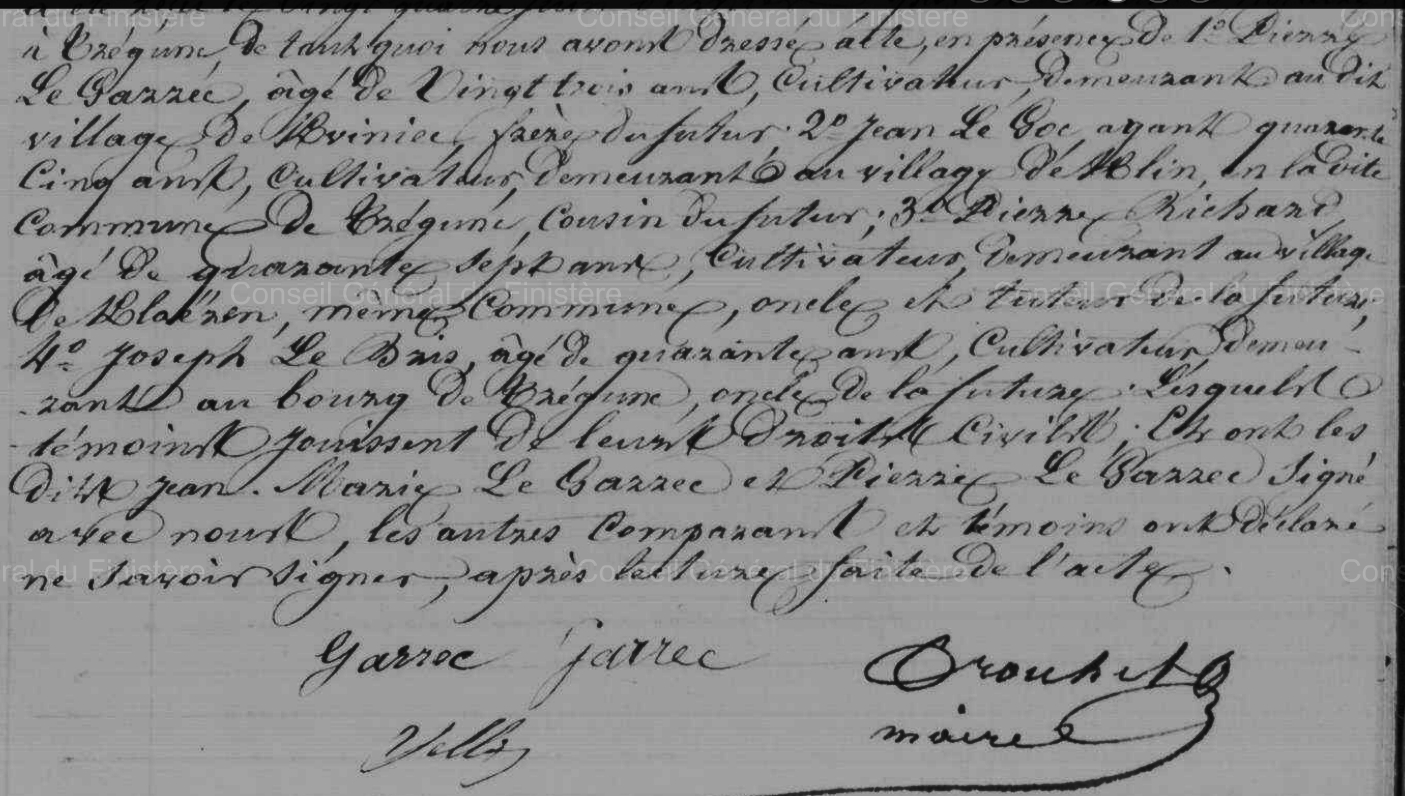 à Trégunc, de tout quoi nous avons dressé acte, en présence de 1º Pierre
Le Garrec, âgé de Vingt trois ans, Cultivateur, demeurant au dit
village de Kviniec, frère du futur; 2º Jean Le Goc, ayant quarante
Cinq ans, Cultivateur, demeurant au village de Klin, en la dite
Commune de Trégunc, Cousin du futur; 3º Pierre Richard,
âgé de quarante sept ans, Cultivateur, demeurant au village
de Klaëren, même Commune, oncle et tuteur de la future,
4º Joseph Le Bris, âgé de quarante ans, Cultivateur, demeu-
-rant au bourg de Trégunc, oncle de la future; Lesquels
témoins jouissent de leurs droits Civils; Et ont les
dits Jean-Marie Le Garrec et Pierre Le Garrec Signé
avec nous, les autres Comparans et témoins ont déclaré
ne Savoir Signer, après lecture faite de l'acte.
Garrec Garrec
maire
Conseil Général du Finistère